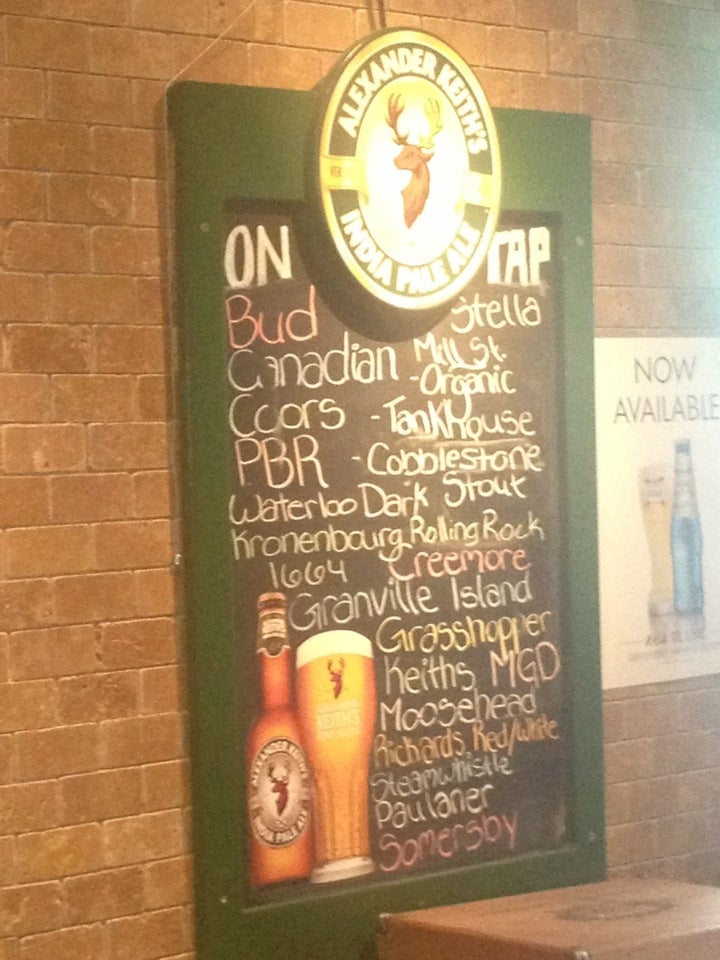 ALEXANDER KEITH'S
INDIA PALE ALE
ON TAP
Bud Stella
Canadian Mill St.
-Organic
Coors -Tankhouse
PBR -Cobblestone
Waterloo Dark Stout
Kronenbourg Rolling Rock
1664 Creemore
Granville Island
Grasshopper
Keiths MGD
Moosehead
Richards Red/White
Steamwhistle
Paulaner
Somersby
ALEXANDER KEITH'S
INDIA PALE ALE
KEITH'S
NOW
AVAILABLE